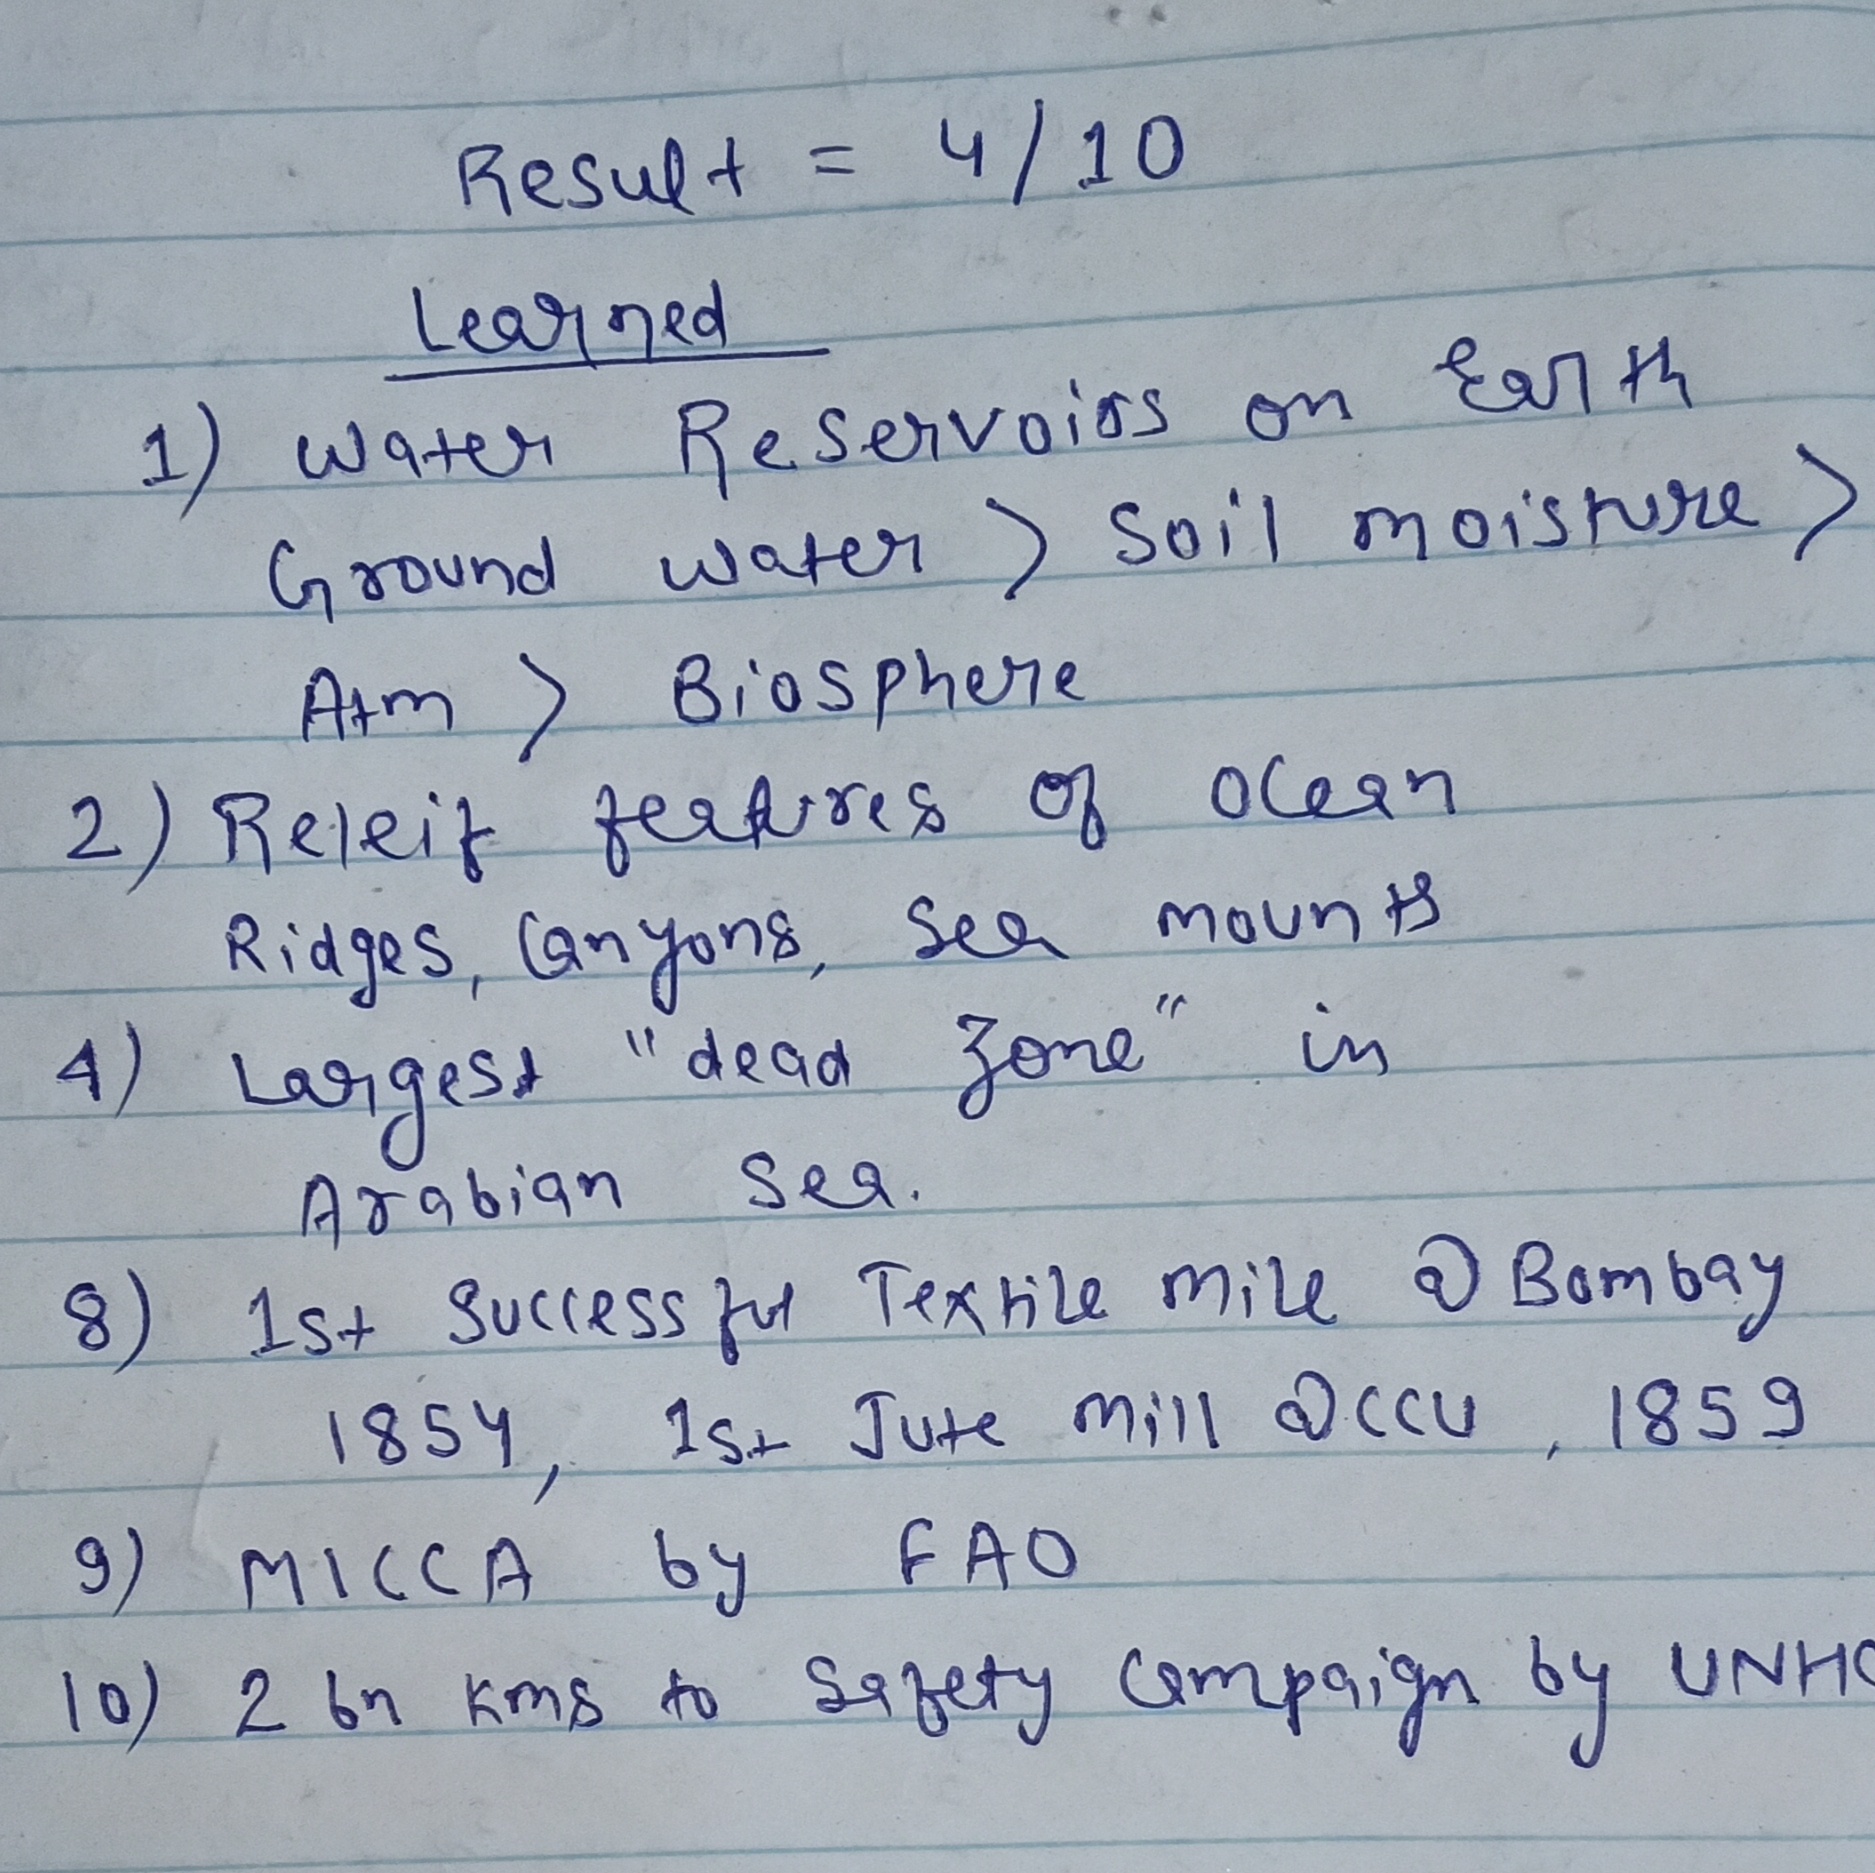 Result = 4/10
Learned
1) Water Reservoirs on Earth
Ground water > Soil moisture >
Atm > Biosphere
2) Releif features of Ocean
Ridges, Canyons, Sea mounts
4) Largest "dead zone" in
Arabian Sea.
8) 1st Successful Textile Mile @ Bombay
1854, 1st Jute Mill @ CCU, 1859
9) MICCA by FAO
10) 2 bn Kms to Safety Campaign by UNHC